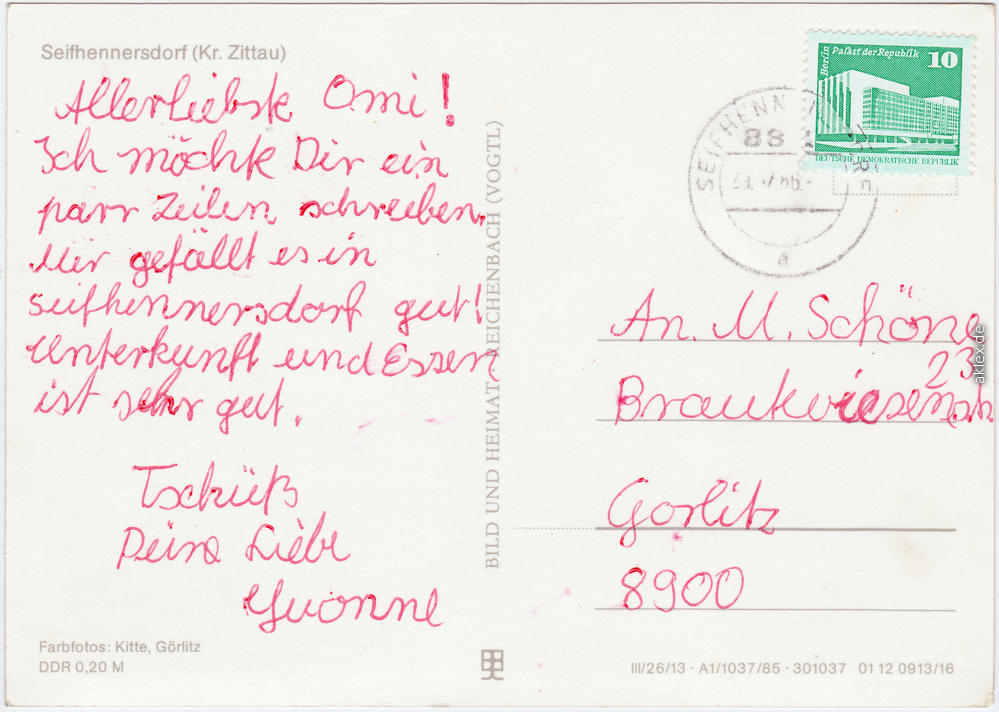 Seifhennersdorf (Kr. Zittau)
Allerliebste Omi!
Ich möchte Dir ein
parr Zeilen schreiben.
Mir gefällt es in
Seifhennersdorf gut!
Unterkunft und Essen
ist sehr gut.
Tschüß
Deine Liebe
Yvonne
Farbfotos: Kitte, Görlitz
DDR 0,20 M
BILD UND HEIMAT REICHENBACH (VOGTL)
Berlin Palast der Republik 10
DEUTSCHE DEMOKRATISCHE REPUBLIK
88
a
An. M. Schöne
23
Gorlitz
8900
III/26/13 · A1/1037/85 · 301037 01 12 0913/16
aklex.de